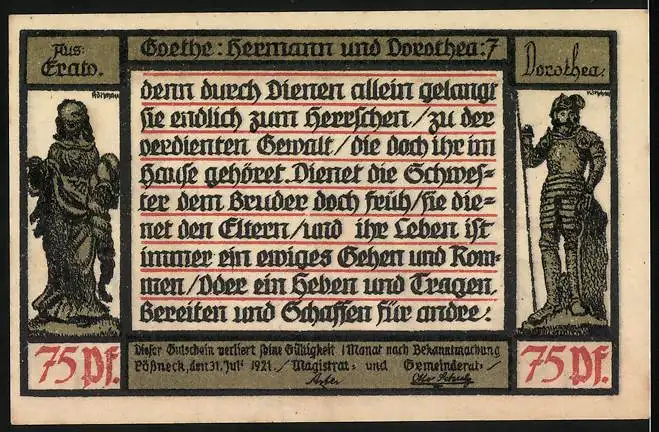 Aus:
Erato.
Goethe: Hermann und Dorothea: 7
Dorothea.
denn durch Dienen allein gelangt
sie endlich zum Herrschen/zu der
verdienten Gewalt/die doch ihr im
Hause gehöret. Dienet die Schwes=
ter dem Bruder doch früh/sie die=
net den Eltern/und ihr Leben ist
immer ein ewiges Gehen und Kom=
men/Oder ein Heben und Tragen,
Bereiten und Schaffen für andre:
75 Pf.
Dieser Gutschein verliert seine Gültigkeit 1 Monat nach Bekanntmachung
Pößneck, den 31. Juli 1921. Magistrat= und Gemeinderat=/
75 Pf.